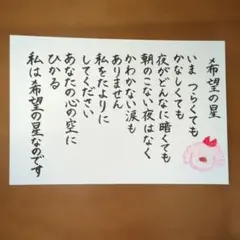 希望の星
いま つらくても
かなしくても
夜がどんなに暗くても
朝のこない夜はなく
かわかない涙も
ありません
私をたよりに
してください
あなたの心の空に
ひかる
私は希望の星なのです